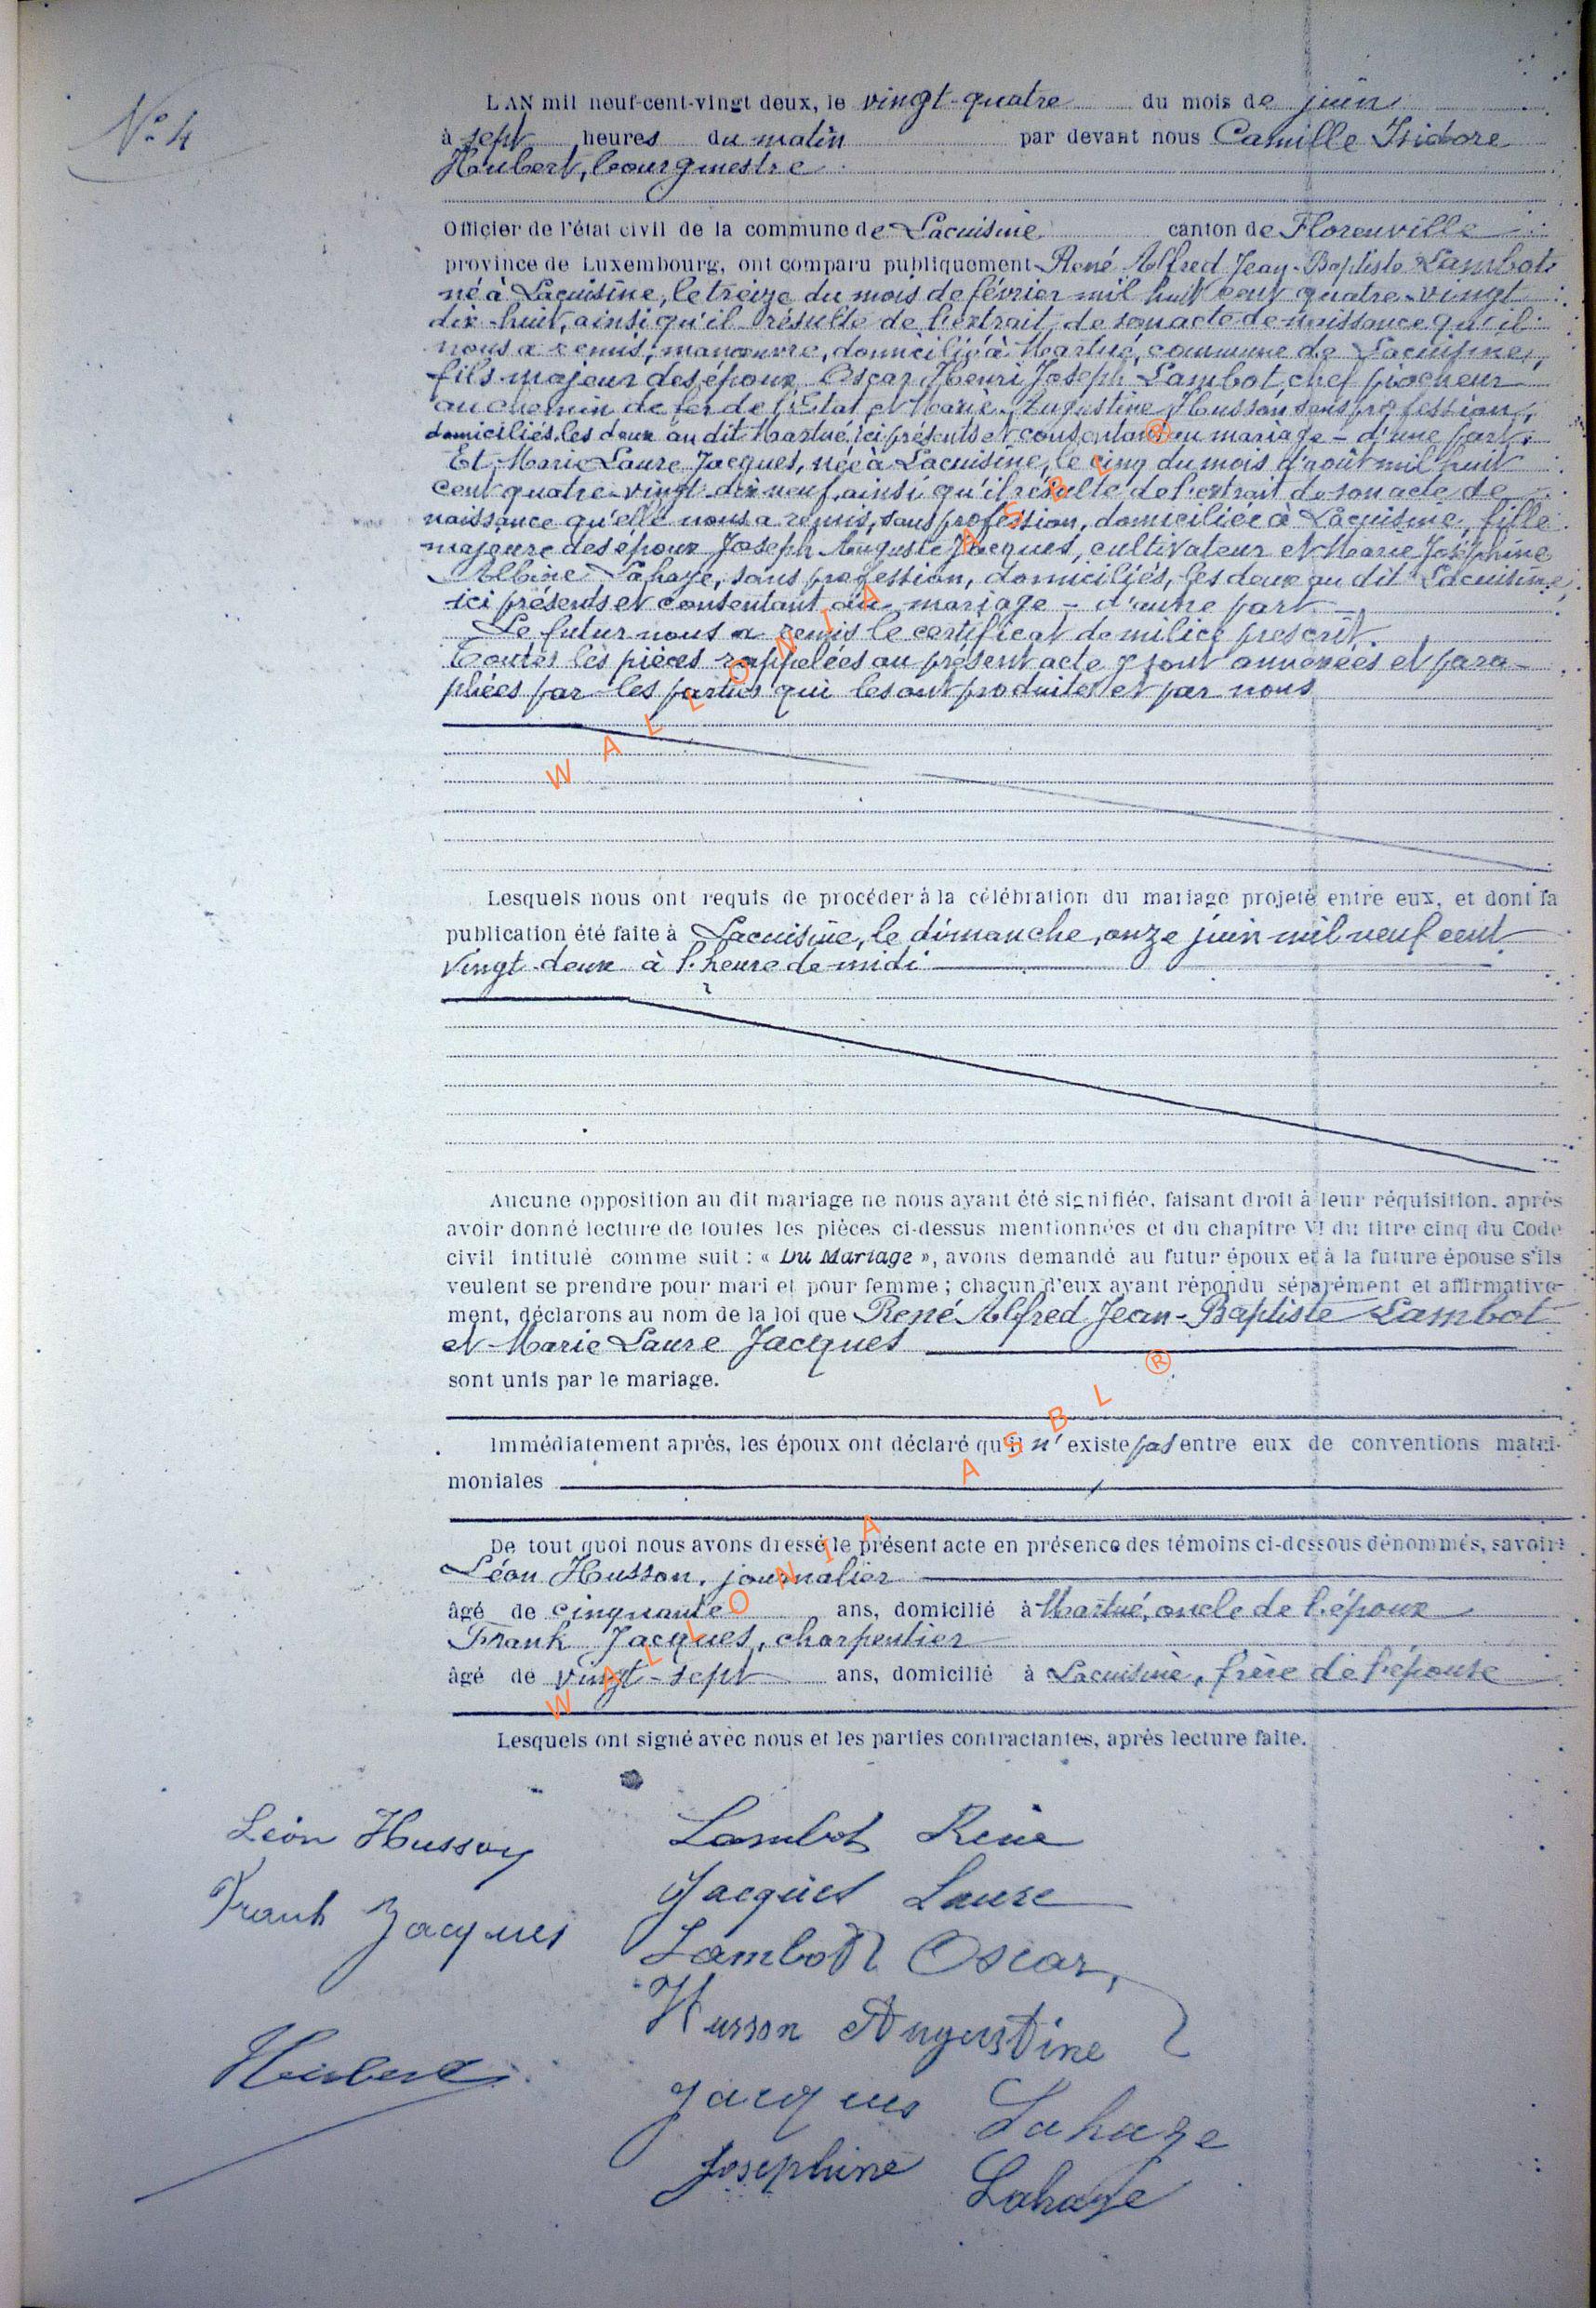 N° 4
L'AN mil neuf-cent-vingt deux, le vingt-quatre du mois de juin
à sept heures du matin par devant nous Camille Isidore
Hubert, bourgmestre
Officier de l'état civil de la commune de Lacuisine canton de Florenville
province de Luxembourg, ont comparu publiquement René Alfred Jean-Baptiste Lambot
né à Lacuisine, le treize du mois de février mil huit cent quatre-vingt
dix-huit, ainsi qu'il résulte de l'extrait de son acte de naissance qu'il
nous a remis, manœuvre, domicilié à Martué, commune de Lacuisine,
fils majeur des époux Oscar Henri Joseph Lambot, chef piocheur
au chemin de fer de l'Etat et Marie Augustine Husson sans profession,
domiciliés les deux au dit Martué, ici présents et consentant au mariage - d'une part.
Et Marie Laure Jacques, née à Lacuisine, le cinq du mois d'août mil huit
cent quatre-vingt dix neuf, ainsi qu'il résulte de l'extrait de son acte de
naissance qu'elle nous a remis, sans profession, domiciliée à Lacuisine, fille
majeure des époux Joseph Auguste Jacques, cultivateur et Marie Joséphine
Albine Lahaye, sans profession, domiciliés, les deux au dit Lacuisine,
ici présents et consentant au mariage - d'autre part
Le futur nous a remis le certificat de milice prescrit.
Toutes les pièces rappelées au présent acte y sont annexées et para-
phées par les parties qui les ont produites et par nous
Lesquels nous ont requis de procéder à la célébration du mariage projeté entre eux, et dont la
publication été faite à Lacuisine, le dimanche, onze juin mil neuf cent
vingt-deux à l'heure de midi
Aucune opposition au dit mariage ne nous ayant été signifiée, faisant droit à leur réquisition, après
avoir donné lecture de toutes les pièces ci-dessus mentionnées et du chapitre VI du titre cinq du Code
civil intitulé comme suit : « Du Mariage », avons demandé au futur époux et à la future épouse s'ils
veulent se prendre pour mari et pour femme ; chacun d'eux ayant répondu séparément et affirmative-
ment, déclarons au nom de la loi que René Alfred Jean-Baptiste Lambot
et Marie Laure Jacques
sont unis par le mariage.
Immédiatement après, les époux ont déclaré qu'il n'existe pas entre eux de conventions matri-
moniales
De tout quoi nous avons dressé le présent acte en présence des témoins ci-dessous dénommés, savoir :
Léon Husson, journalier
âgé de cinquante ans, domicilié à Martué, oncle de l'époux
Frank Jacques, charpentier
âgé de vingt-sept ans, domicilié à Lacuisine, frère de l'épouse
Lesquels ont signé avec nous et les parties contractantes, après lecture faite.
Léon Husson
Lambot René
Frank Jacques
Jacques Laure
Lambot Oscar
Husson Augustine
Hubert
Jacques Lahaye
Josephine Lahaye
WALLONIA ASBL ®
WALLONIA ASBL ®